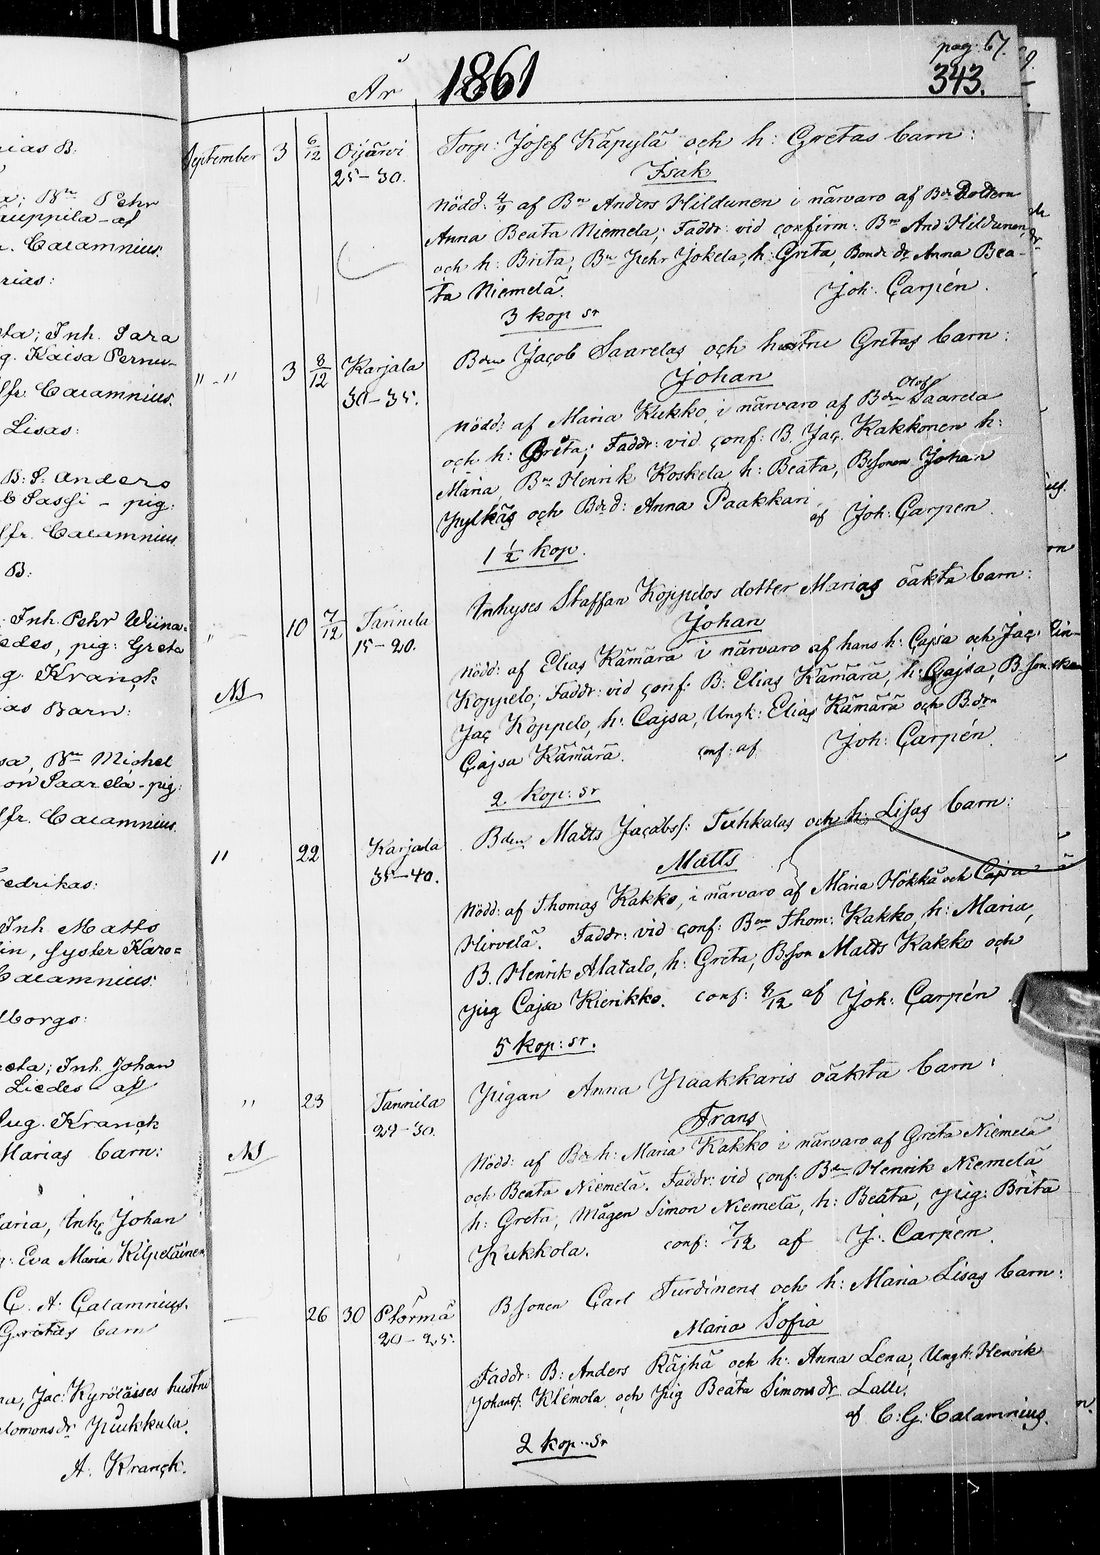 rias B:
a; Bn Petr
Kauppila - af
. Calamnius.
rias:
ta; Inh. Sara
g. Kaisa Pernu-
ffr. Calamnius.
Lisas:
B: S. Anders
pig:
ffr. Calamnius
B:
, Inh. Petr Wiina-
edes, pig: Greta
g Kranck
as Barn:
sa, Bn Michel
on Saarela - pig:
ffr. Calamnius
redrikas:
Inh Matts
in, syster Karo=
Calamnius:
lborgs:
eta; Inh. Johan
Liedes af
Aug. Kranck
Marias barn:
aria, Inh. Johan
: Eva Maria Kilpeläinen
C. A. Calamnius.
Gretas barn
na, Jac: Kyröläises hustru
lomons dr Kukkula.
A. Kranck.
År 1861
pag: 67.
343.
September 3 6/12 Oijärvi 25-30.
Torp: Josef Käpylä och h: Gretas barn:
Isak
Nödd: 4/9 af Bn Anders Hildunen i närvaro af Bde Dottern
Anna Beata Niemelä; Faddr: vid confirm: Bn And Hildunen,
och h: Brita, Bn Pehr Jokela, h: Greta, Bonde dr Anna Bea-
ta Niemelä. Joh: Carpén.
3 kop sr
" - " 3 8/12 Karjala 30-35.
Bden Jacob Saarelas och hustru Gretas barn:
Johan
Nödd: af Maria Kukko, i närvaro af Bden Olof Saarela
och h: Greta; Faddr: vid conf: B. Jac. Kakkonen h:
Maria, Bn Henrik Koskela, h: Beata, Bsonen Johan
Pylkäs och Bde d: Anna Paakkari af Joh: Carpen.
1 1/2 kop.
" 10 7/12 Tannila 15-20.
Inhyses Staffan Koppelos dotter Marias oäkta barn:
Johan
Nödd: af Elias Kämärä i närvaro af hans h: Cajsa och Jac: Ein-
Koppelo; Faddr: vid conf: B: Elias Kämärä, h: Cajsa, B son
Jac Koppelo, h: Cajsa, Ungk: Elias Kämärä och B.drn
Cajsa Kämärä. conf: af Joh: Carpén.
2 kop: sr
" 22 Karjala 35-40.
Bden Matts Jacobss: Tuhkalas och h: Lisas barn:
Matts
Nödd: af Thomas Kakko, i närvaro af Maria Hökkä och Cajsa
Hirvelä. Faddr: vid conf: Bn Thom: Kakko, h: Maria,
B. Henrik Alatalo, h: Greta, Bsson Matts Kakko och
pig Cajsa Kierikko. conf: 8/12 af Joh: Carpén.
5 kop: sr.
" 23 Tannila 29-30.
Pigan Anna Paakkaris oäkta barn:
Frans
Nödd: af Bde h: Maria Kakko i närvaro af Greta Niemelä
och Beata Niemelä. Faddr: vid conf: Bn Henrik Niemelä
h: Greta, Mågen Simon Niemelä, h: Beata, pig: Brita
Kukkola. conf: 7/12 af J: Carpén.
26 30 20-25.
Bsonen Carl Turdinens och h: Maria Lisas barn:
Maria Sofia
Faddr: B: Anders Räjhä och h: Anna Lena, Ungk: Henrik
Johanss: Klemola, och pig Beata Simons dr Lalli.
af C: G: Calamnius.
2 kop: sr